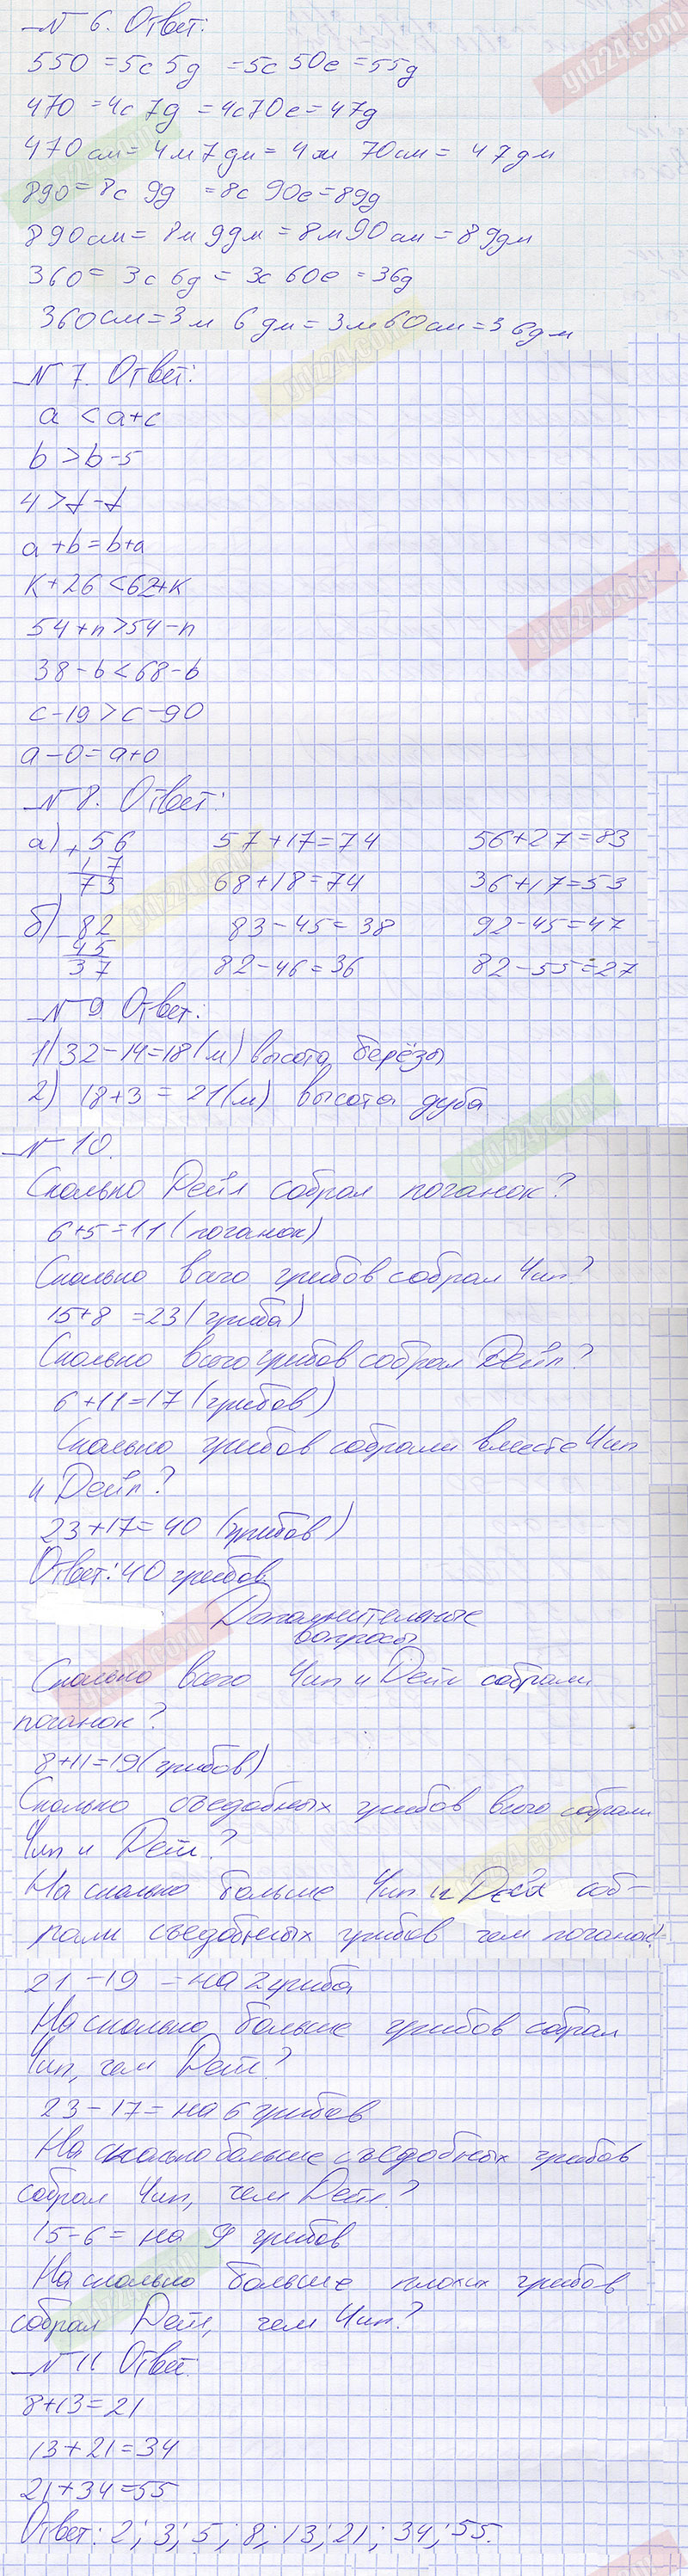 № 6. Ответ:
550 = 5с 5д = 5с 50е = 55д
470 = 4с 7д = 4с70е = 47д
470 см = 4 м 7 дм = 4 м 70 см = 47 дм
890 = 8с 9д = 8с 90е = 89д
890 см = 8м 9дм = 8м 90 см = 89дм
360 = 3с 6д = 3с 60е = 36д
360 см = 3м 6 дм = 3м 60 см = 36дм
№ 7. Ответ:
a < a+c
b > b-5
4 > t-t
a+b = b+a
к+26 < 62+к
54+n > 54-n
38-b < 68-b
c-19 > c-90
a-0 = a+0
№ 8. Ответ:
а) + 56 57+17=74 56+27=83
17
73 68+18=74 36+17=53
б) - 82 83-45=38 92-45=47
45
37 82-46=36 82-55=27
№ 9 Ответ:
1) 32-14=18(м) высота берёзы
2) 18+3=21(м) высота дуба
№ 10.
Сколько Дейл собрал поганок?
6+5=11 (поганок)
Сколько всего грибов собрал Чип?
15+8=23 (гриба)
Сколько всего грибов собрал Дейл?
6+11=17 (грибов)
Сколько грибов собрали вместе Чип
и Дейл?
23+17=40 (грибов)
Ответ: 40 грибов.
Дополнительные
вопросы
Сколько всего Чип и Дейл собрали
поганок?
8+11=19 (грибов)
Сколько съедобных грибов всего собрали
Чип и Дейл?
На сколько больше Чип и Дейл соб-
рали съедобных грибов чем поганок?
21-19 = на 2 гриба
На сколько больше грибов собрал
Чип, чем Дейл?
23-17 = на 6 грибов
На сколько больше съедобных грибов
собрал Чип, чем Дейл?
15-6 = на 9 грибов
На сколько больше плохих грибов
собрал Дейл, чем Чип?
№ 11 Ответ
8+13=21
13+21=34
21+34=55
Ответ: 2; 3; 5; 8; 13; 21; 34; 55.
gdz24.com
gdz24.com
gdz24.com
gdz24.com
gdz24.com
gdz24.com
gdz24.com